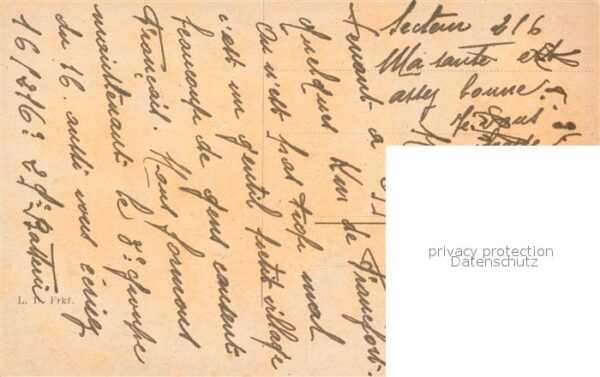 Secteur 216
Ma santé est
assez bonne.
Je suis
tenant à
quelques Km de Francfort.
On n'est pas trop mal
c'est un gentil petit village
beaucoup de gens causent
français. Nous formons
maintenant le 3e groupe
du 16. aussi vous écrirez
16/216: 29e Batterie
L. D. Frkf.
privacy protection
Datenschutz